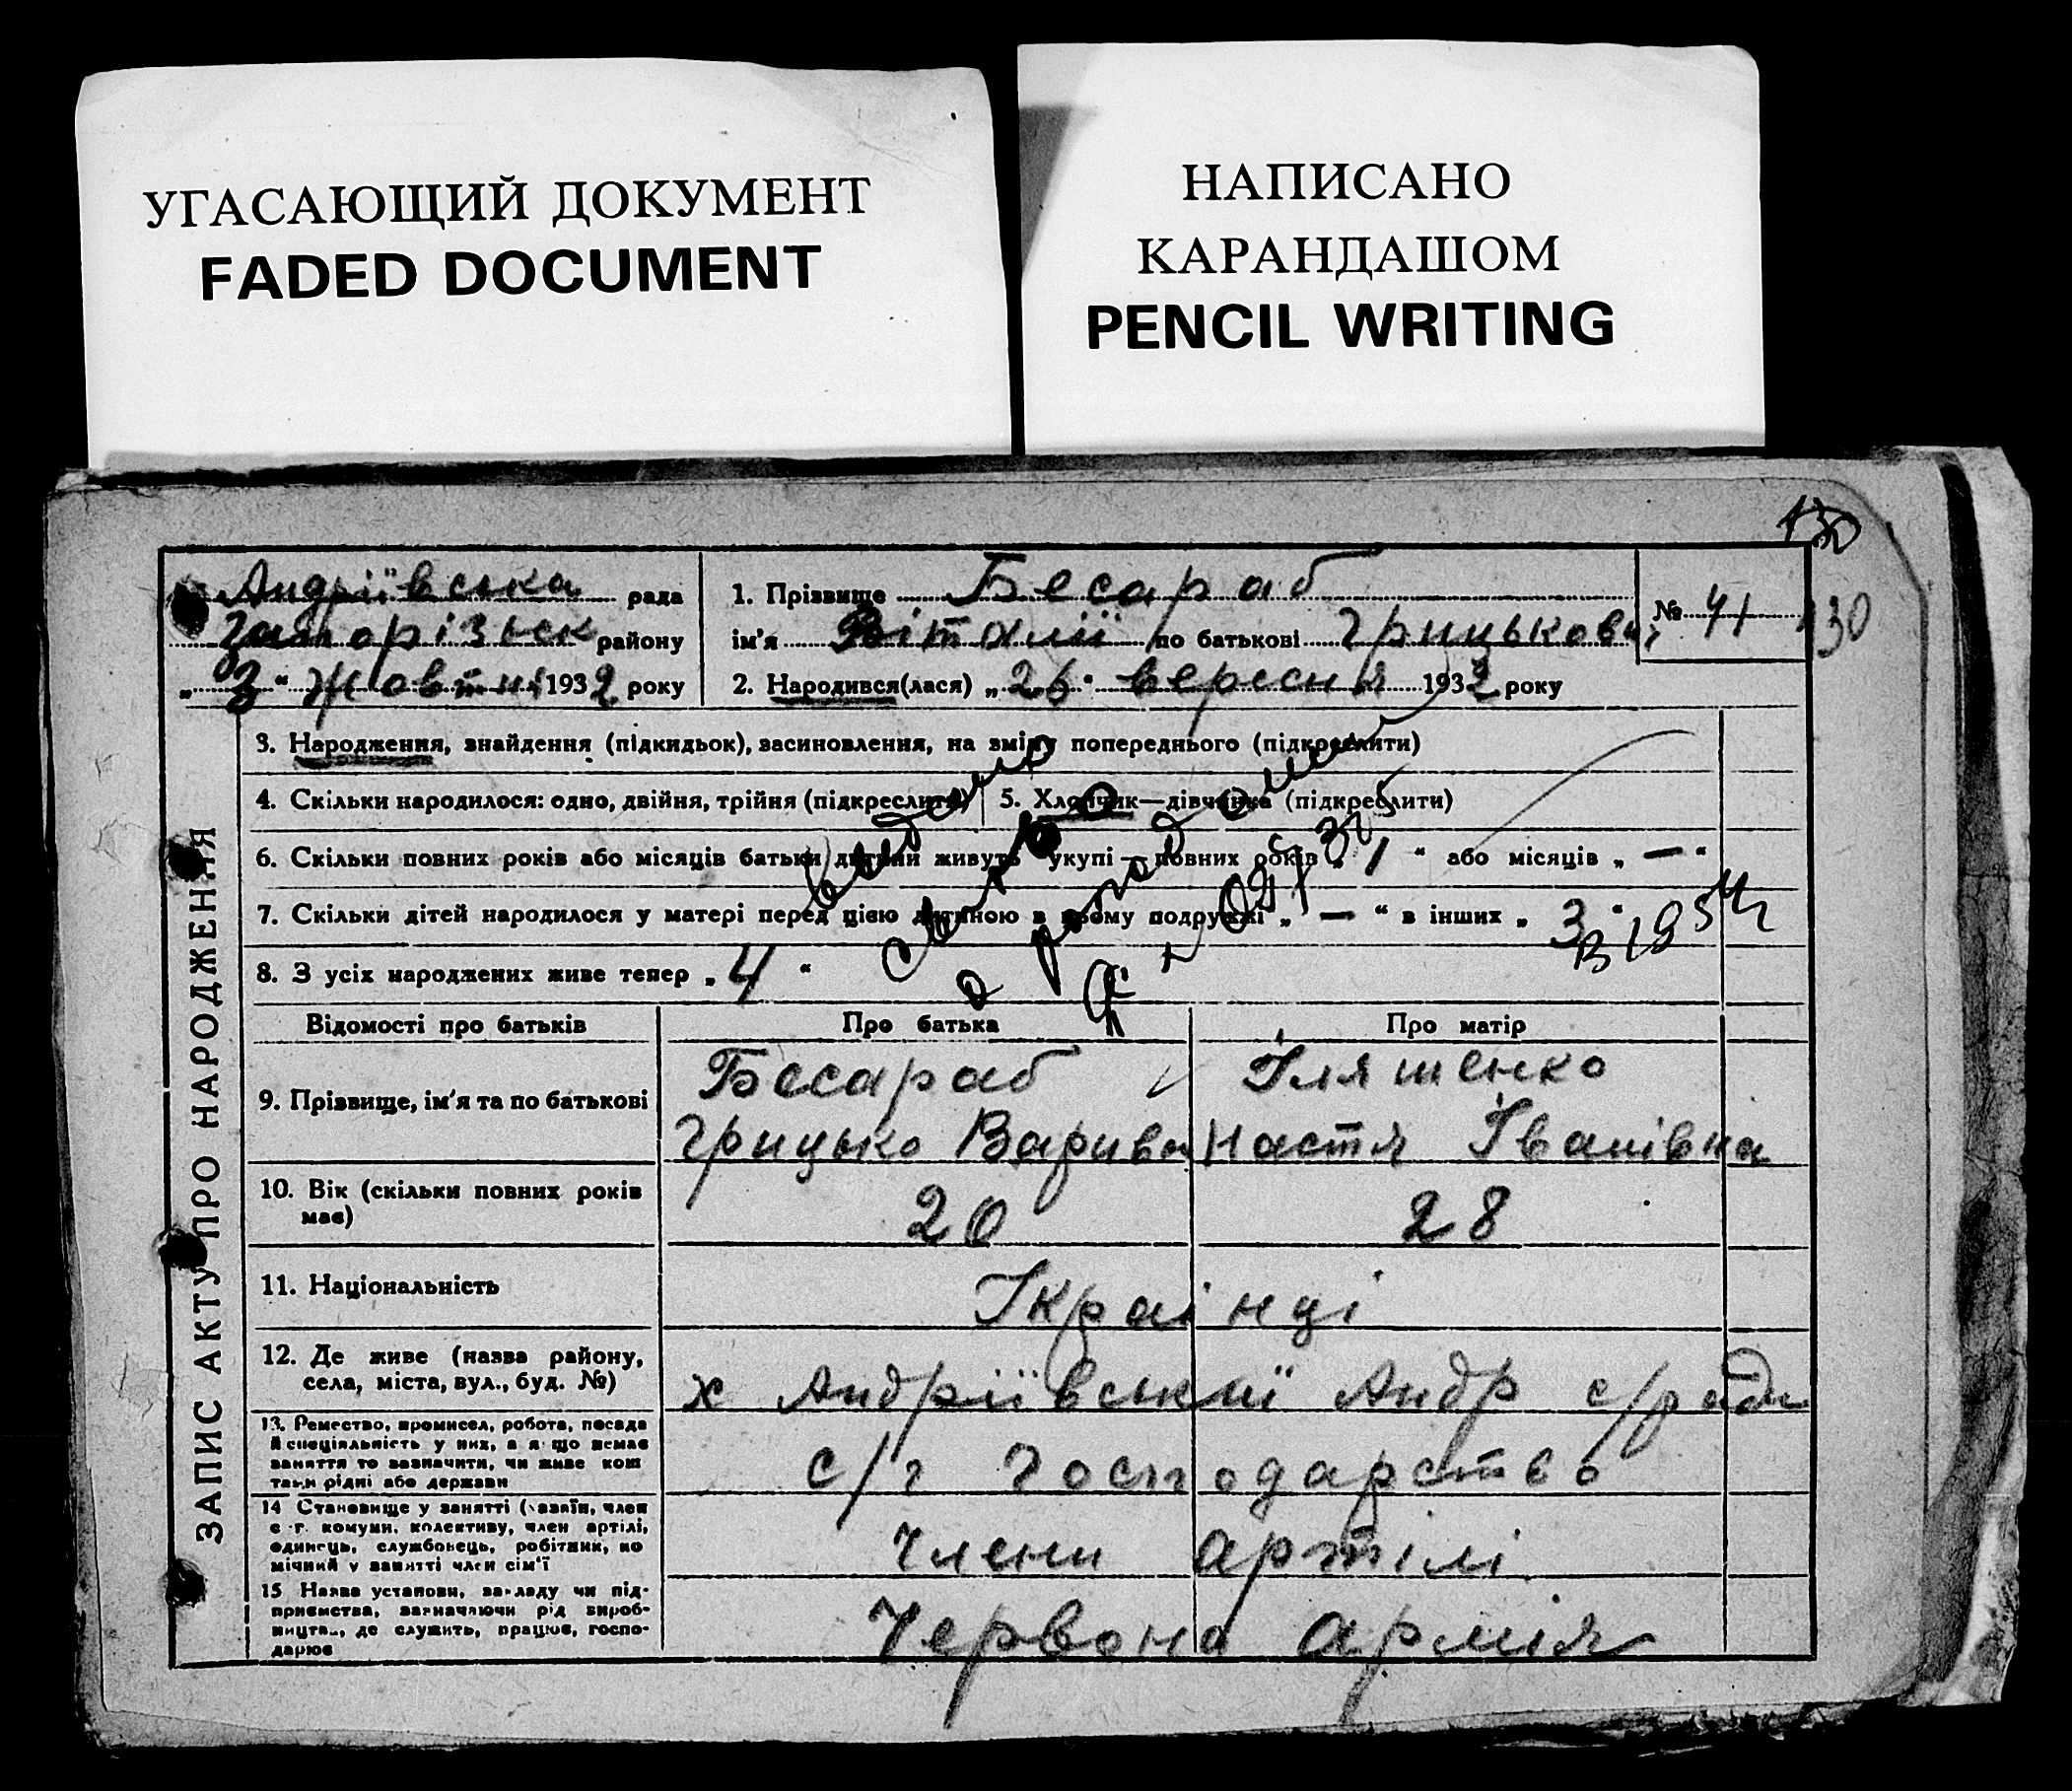 УГАСАЮЩИЙ ДОКУМЕНТ
FADED DOCUMENT
НАПИСАНО
КАРАНДАШОМ
PENCIL WRITING
130
Андріївська рада
Запорізьк району
„ 3 “ Жовтні 1932 року
1. Прізвище Бесараб
ім'я Віталії по батькові Грицькови
2. Народився(лася) „ 26 “ вересня 1932 року
№ 41
130
ЗАПИС АКТУ ПРО НАРОДЖЕННЯ
3. Народження, знайдення (підкидьок), засиновлення, на зміну попереднього (підкреслити)
4. Скільки народилося: одно, двійня, трійня (підкреслити) 5. Хлопчик—дівчинка (підкреслити)
6. Скільки повних років або місяців батьки дитини живуть укупі — повних років „ 1 “ або місяців „ — “
7. Скільки дітей народилося у матері перед цією дитиною в цьому подружжі „ — “ в інших „ 3 “
8. З усіх народжених живе тепер „ 4 “
видано
о
Відомості про батьків Про батька Про матір
9. Прізвище, ім'я та по батькові
Бесараб
Грицько Варива
Іляшенко
Настя Іванівна
10. Вік (скільки повних років
має)
20 28
11. Національність
Українці
12. Де живе (назва району,
села, міста, вул., буд. №)
х Андріївський Андр с/ради
13. Ремество, промисел, робота, посада
й спеціяльність у них, а якщо немає
заняття то зазначити, чи живе кошт
таки рідні або держави
с/г господарство
14 Становище у занятті (хазяїн, член
с.-г. комуни, колективу, член артілі,
одинець, службовець, робітник, по
мічний у занятті член сім'ї
Члени артілі
15 Назва установи, закладу чи під-
приємства, зазначаючи рід вироб-
ництва, де служить, працює, госпо-
дарює
Червона армія